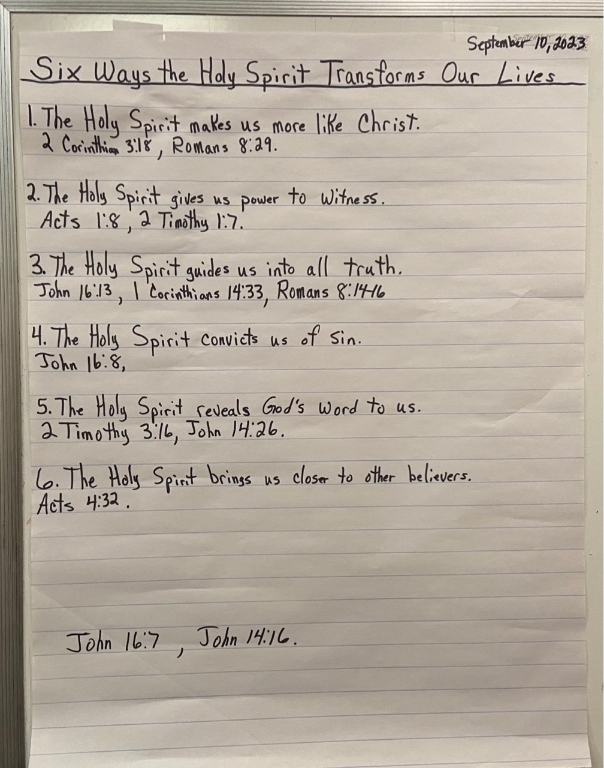 September 10, 2023
Six Ways the Holy Spirit Transforms Our Lives
1. The Holy Spirit makes us more like Christ.
2 Corinthian 3:18, Romans 8:29.
2. The Holy Spirit gives us power to witness.
Acts 1:8, 2 Timothy 1:7.
3. The Holy Spirit guides us into all truth.
John 16:13, 1 Corinthians 14:33, Romans 8:14-16
4. The Holy Spirit convicts us of sin.
John 16:8,
5. The Holy Spirit reveals God's word to us.
2 Timothy 3:16, John 14:26.
6. The Holy Spirit brings us closer to other believers.
Acts 4:32.
John 16:7, John 14:16.